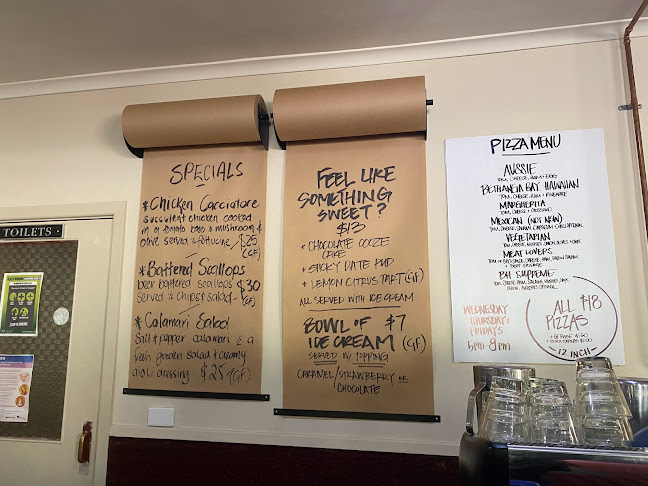 TOILETS
SPECIALS
* Chicken Cacciatore
succulent chicken cooked
in a tomato base & mushroom &
olive served w fettucine $25
(GF)
* Battered Scallops
beer battered scallops $30
served w chips & salad - (GF)
* Calamari Salad
Salt & pepper calamari
fresh garden salad & creamy
aioli dressing $25 (GF)
FEEL LIKE
SOMETHING
SWEET?
$13
• CHOCOLATE OOZE
CAKE
• STICKY DATE PUD
• LEMON CITRUS TART (GF)
ALL SERVED WITH ICE CREAM
BOWL OF $7
ICE CREAM (GF)
SERVED W/ TOPPING
CARAMEL/STRAWBERRY OR
CHOCOLATE
PIZZA MENU
AUSSIE
TOM, CHEESE, HAM & EGG
BETHANGA BAY HAWAIIAN
TOM, CHEESE, HAM & PINEAPPLE
MARGHERITA
TOM, CHEESE & OREGANO
MEXICAN (NOT NEW)
VEGETARIAN
MEAT LOVERS
BH SUPREME
WEDNESDAY
THURSDAY &
FRIDAYS
5PM - 8PM
ALL $18
PIZZAS
12 INCH